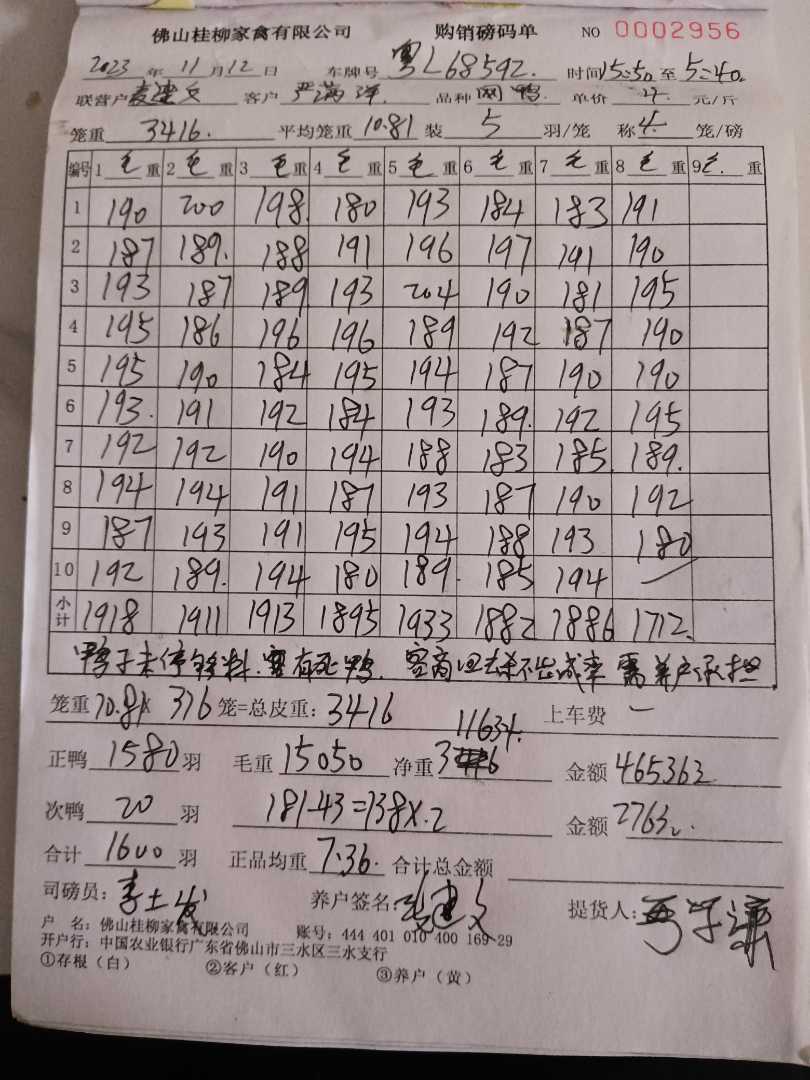 佛山桂柳家禽有限公司 购销磅码单 NO 0002956
2023年11月12日 车牌号 粤L68592. 时间15:50至5:40
联营户 建文 客户 严满洋 品种 网鸭 单价 元/斤
笼重 3416. 平均笼重 10.81 装 5 羽/笼 称 4 笼/磅
编号 1 毛 重 2 毛 重 3 毛 重 4 毛 重 5 毛 重 6 毛 重 7 毛 重 8 毛 重 9 毛 重
1 190 200 198 180 193 184 183 191
2 187 189. 188 191 196 197 191 190
3 193 187 189 193 204 190 181 195
4 195 186 196 196 189 192 187 190
5 195 190 184 195 194 187 190 190
6 193. 191 192 184 193 189. 192 195
7 192 192 190 194 188 183 185 189.
8 194 194 191 187 193 187 190 192
9 187 193 191 195 194 188 193 180
10 192 189. 194 180 189. 185 194 —
小计 1918 1911 1913 1895 1933 1882 1886 1712.
鸭子未停 料. 有死鸭. 客商回去杀不出成率 需养户承担
笼重 10.81X 316 笼=总皮重: 3416 上车费 —
11634.
正鸭 1580 羽 毛重 15050 净重 金额 465362
次鸭 20 羽 181-43=138X.2 金额 2763
合计 1600 羽 正品均重 7.36. 合计总金额
司磅员: 李土发 养户签名: 建文 提货人:
户 名: 佛山桂柳家禽有限公司 账号: 444 401 010 400 169 29
开户行: 中国农业银行广东省佛山市三水区三水支行
①存根（白） ②客户（红） ③养户（黄）